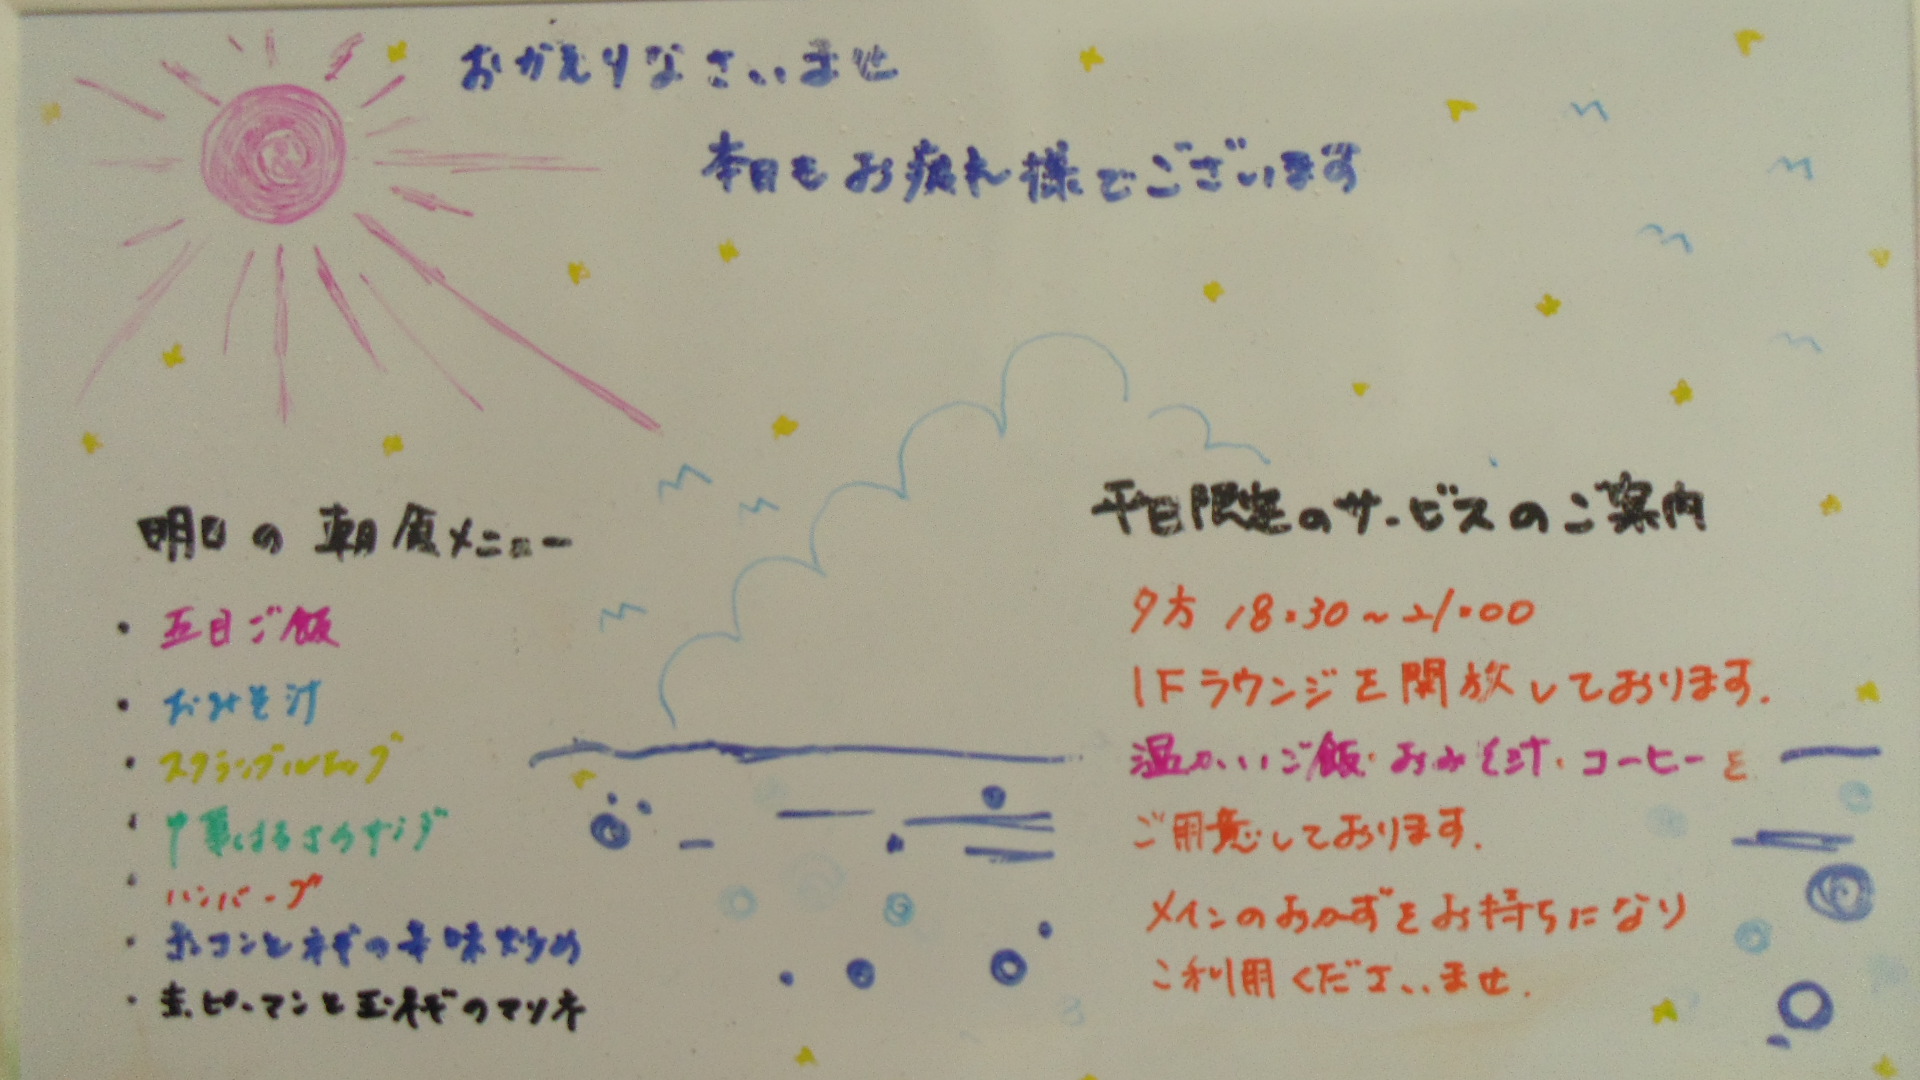 おかえりなさいませ
本日もお疲れ様でございます
明日の朝食メニュー
・五目ご飯
・おみそ汁
・スクランブルエッグ
・中華はるさめサラダ
・ハンバーグ
とネギの辛味炒め
ピーマンと玉ネギのマリネ
平日限定のサービスのご案内
夕方 18:30~21:00
1Fラウンジを開放しております.
温かいご飯・おみそ汁・コーヒーを
ご用意しております.
メインのおかずをお持ちになり
ご利用くださいませ.